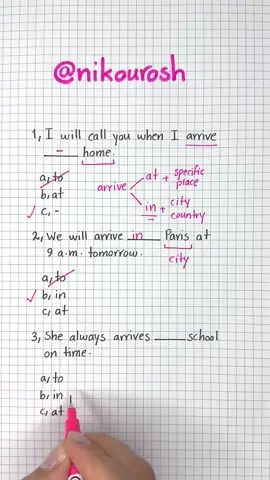 @nikourosh
1, I will call you when I arrive
- home.
a, to
b, at
c, -
arrive
at + specific place
in + city country
2, We will arrive in Paris at
9 a.m. tomorrow.
city
a, to
b, in
c, at
3, She always arrives ____ school
on time.
a, to
b, in
c, at